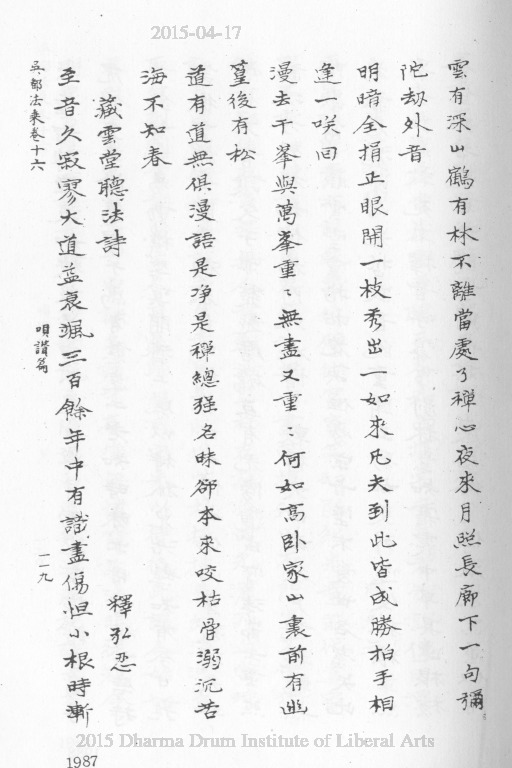 2015-04-17
雲有深山鶴有林不離當處了禪心夜來月照長廊下一句彌
陀劫外音
明暗全捐正眼開一枝秀出一如來凡夫到此皆成勝拍手相
逢一咲回
漫去千峯與萬峯重〻無盡又重〻何如高卧家山裏前有幽
篁後有松
道有道無俱漫語是净是穢總强名昧郤本來咬枯骨溺沉苦
海不知春
藏雲堂聽法詩
釋弘忍
至音久寂寥大道益衰颯三百餘年中有識盡傷怛小根時漸
吳都法乘卷十六
唄讃篇
一一九
2015 Dharma Drum Institute of Liberal Arts
1987